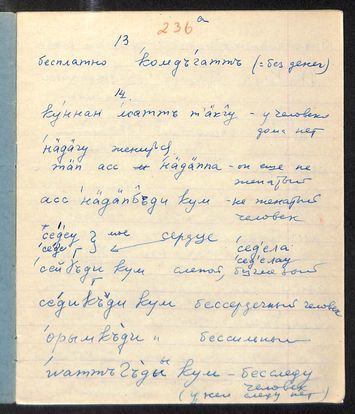 236 а
13
бесплатно 'комдъ́гаттъ (= без денег)
14
ку́ннан маттъ тӓкг̂у - у человека
дома нет
'нӓдӓгу женить
тӓп асс нӓдӓппа - он еще не
женатый
асс 'нӓдӓпб̂ъди кум - не женатый
человек
се́д̂еу } мое сердце
'сед'ела
'сед'елау
кум слепой,
се́дикъ̂ди кум бессердечный человек
о́рымкъди " бессильный
ваттъгъ̂ды кум - бесследу
человек
(у нем следу нет)